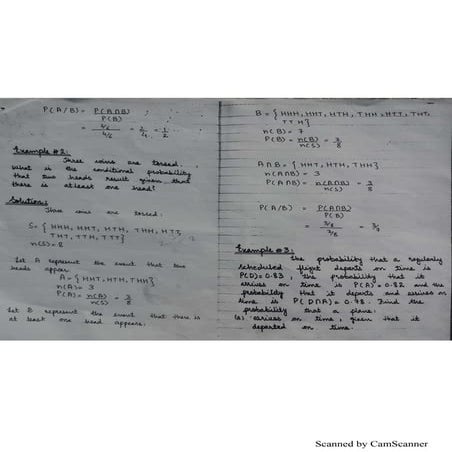 P(A/B) = P(A∩B)
P(B)
= 2/4 = 1/2
Example #2:
Three coins are tossed.
What is the conditional probability
that two heads result given that
there is at least one head?
Solution:
Three coins are tossed.
S = { HHH, HHT, HTH, THH, HTT,
THT, TTH, TTT }
n(S) = 8
Let A represent the event that two
heads appear.
A = { HHT, HTH, THH }
n(A) = 3
P(A) = n(A)/n(S) = 3/8
Let B represent the event that there is
at least one head appears.
B = { HHH, HHT, HTH, THH, HTT, THT,
TTH }
n(B) = 7
P(B) = n(B)/n(S) = 7/8
A∩B = { HHT, HTH, THH }
n(A∩B) = 3
P(A∩B) = n(A∩B)/n(S) = 3/8
P(A/B) = P(A∩B)
P(B)
= 3/8 / 7/8 = 3/7
Example #3:
The probability that a regularly
scheduled flight departs on time is
P(D) = 0.83, the probability that it
arrives on time is P(A) = 0.82 and the
probability that it departs and arrives on
time is P(D∩A) = 0.78. Find the
probability that a plane:
(a) arrives on time, given that it
departed on time.
Scanned by CamScanner